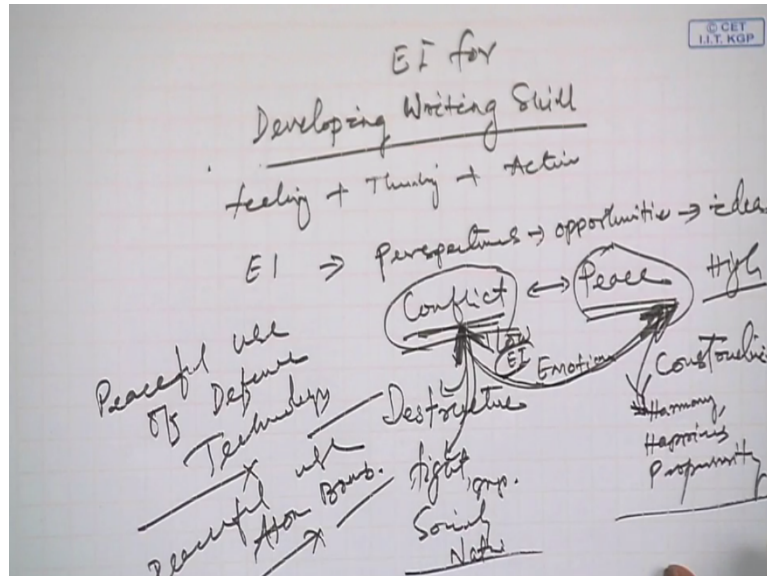 © CET
I.I.T. KGP
EI for
Developing Writing Skill
feeling + Thinking + Action
EI ⇒ Perspectives → opportunities → ideas
Conflict ↔ Peace High
Low
EI Emotion
Destructive
fight, grp.
Society
Constructive
Harmony,
Happiness
Prosperity
Peaceful use
of Defence
Technology
Peaceful use
Atom Bomb.